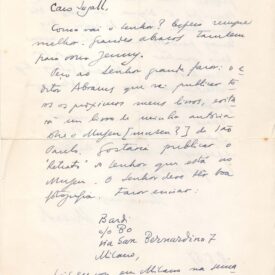 Caro Segall,
Como vai o senhor? Espero sempre
melhor. Grandes abraços tambem
para dona Jenny.
Peço ao senhor grande favor: o e-
ditor Abrams que vai publicar to-
os os próximos meus livros, edita-
rá um livro de minha autoria
sobre o Museu [museu?] de São
Paulo. Gostaria publicar o
"Retrato" do senhor que está no
Museu. O senhor deve ter boa
fotografia. Favor enviar:
Bardi
c/o Bo
via San Bernardino 7
Milano,
em Milano na